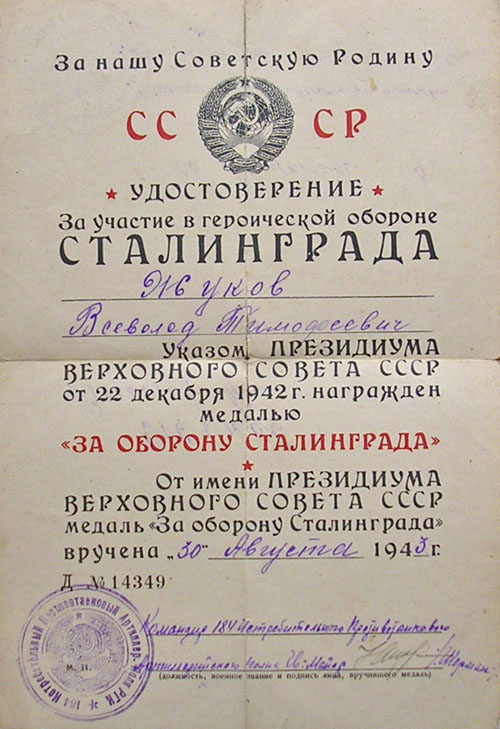 За нашу Советскую Родину
СС СР
УДОСТОВЕРЕНИЕ
За участие в героической обороне
СТАЛИНГРАДА
Жуков
Всеволод Тимофеевич
Указом ПРЕЗИДИУМА
ВЕРХОВНОГО СОВЕТА СССР
от 22 декабря 1942 г. награжден
медалью
«ЗА ОБОРОНУ СТАЛИНГРАДА»
От имени ПРЕЗИДИУМА
ВЕРХОВНОГО СОВЕТА СССР
медаль «За оборону Сталинграда»
вручена „30" Августа 1943 г.
Д №14349
Командир 184 Истребительно Противотанкового
Артиллерийского Полка Гв. Майор
(должность, военное звание и подпись лица, вручившего медаль)
М. П.
184 Истребительный Противотанковый Артиллер. полк РГК